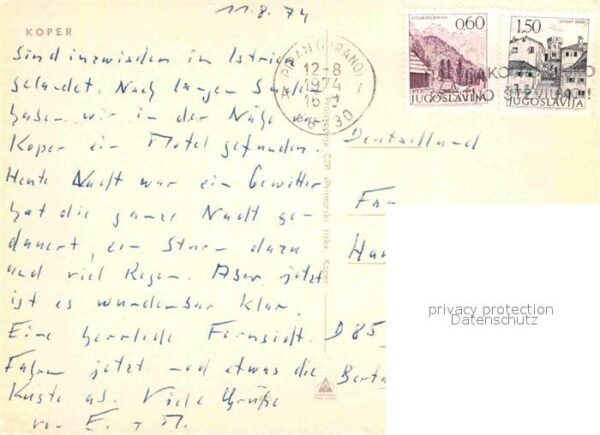 11.8.74
KOPER
Sind inzwischen in Istrien
gelandet. Nach langem Suchen
haben wir in der Nähe von
Koper ein Motel gefunden.
Heute Nacht war ein Gewitter
hat die ganze Nacht ge-
dauert, ein Sturm dazu
und viel Regen. Aber jetzt
ist es wunderbar klar.
Eine herrliche Fernsicht.
Fahren jetzt noch etwas die
Küste ab. Viele Grüße
von E. + M.
PIRAN (PIRANO)
12-8
1974
16
66330
0,60
JUGOSLAVIJA
1,50
JUGOSLAVIJA
Deutschland
Fa
Han
D 85
Berta
privacy protection
Datenschutz